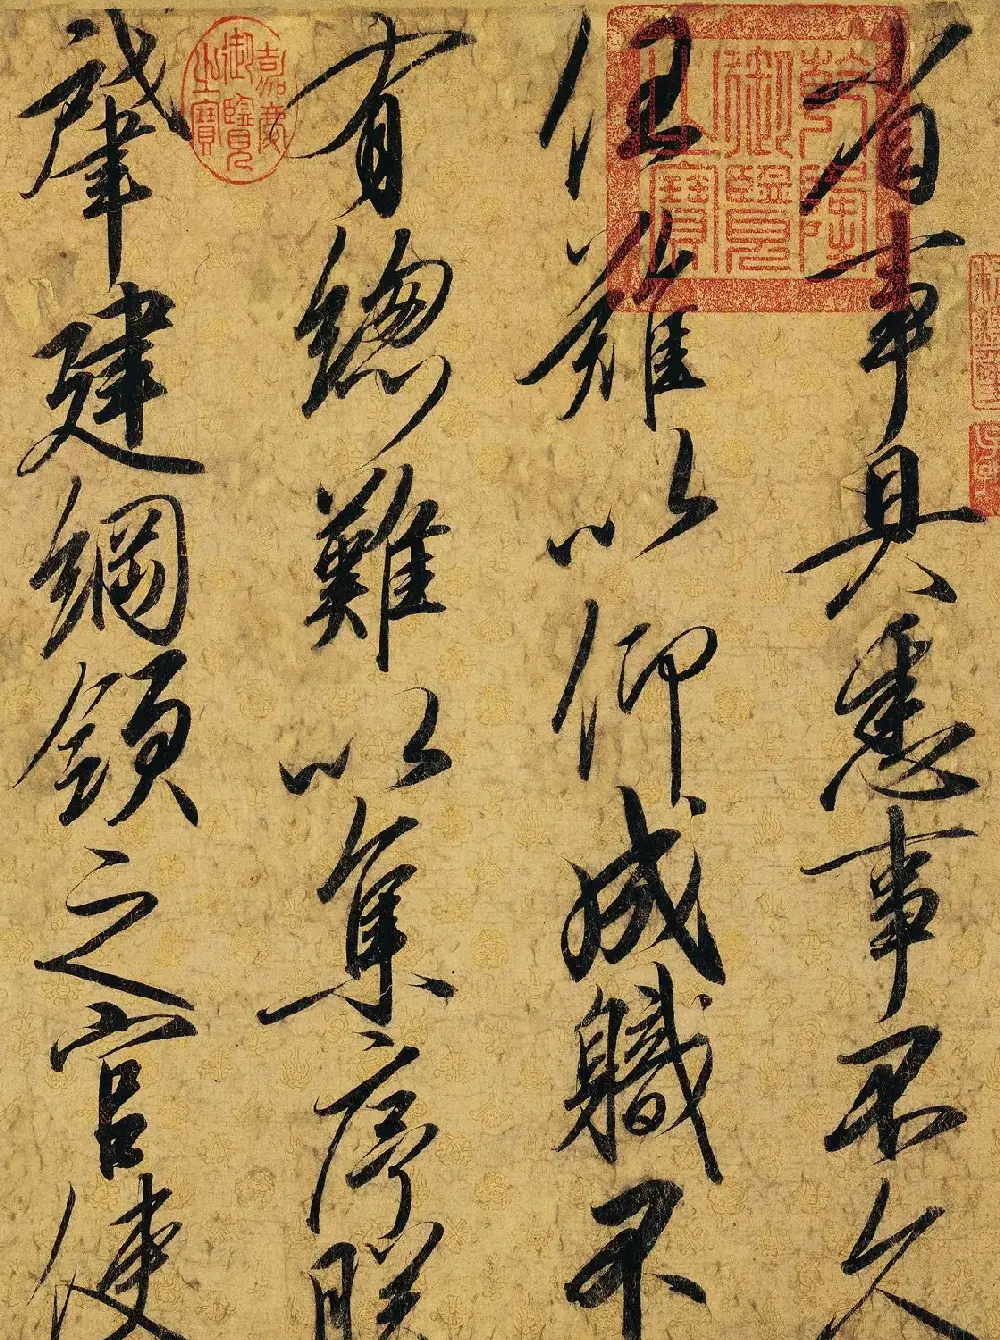 省事具悉事不久
任難以仰成職不
有總難以集序朕
肇建綱領之官使
乾隆御覽之寶
嘉慶御覽之寶